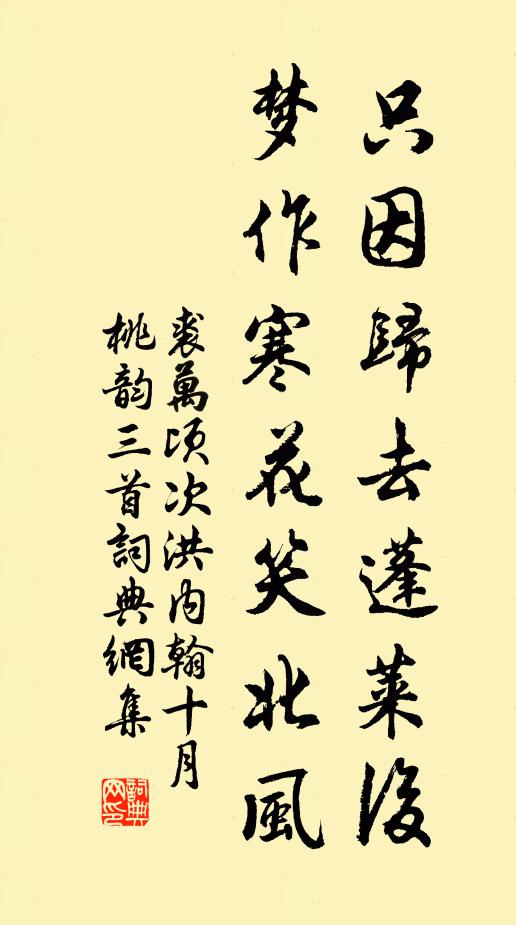 只因歸去蓬萊後
梦作寒花笑北風
裘萬頃次洪内翰十月
桃韵三首詞典網集
詞典网印